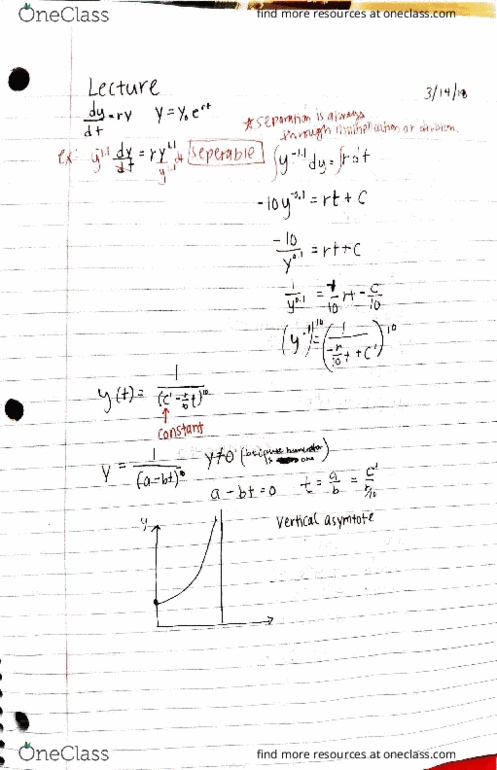 OneClass
find more resources at oneclass.com
Lecture
3/14/18
dy/dt = ry   y = y₀e^rt
* separation is always through multiplication or division.
ex: y^-1.1 dy/dt = ry^1.1 y^-1.1 dt seperable
∫y^-1.1 dy = ∫r dt
-10y^-0.1 = rt + C
-10/y^0.1 = rt + C
1/y^0.1 = -r/10 t - C/10
y(t) = 1/(C' - r/10 t)^10
constant
y = 1/(a-bt)^10   y≠0 (because numerator is one)
a - bt = 0   t = a/b = C'/r/10
y
Vertical asymtote
OneClass
find more resources at oneclass.com